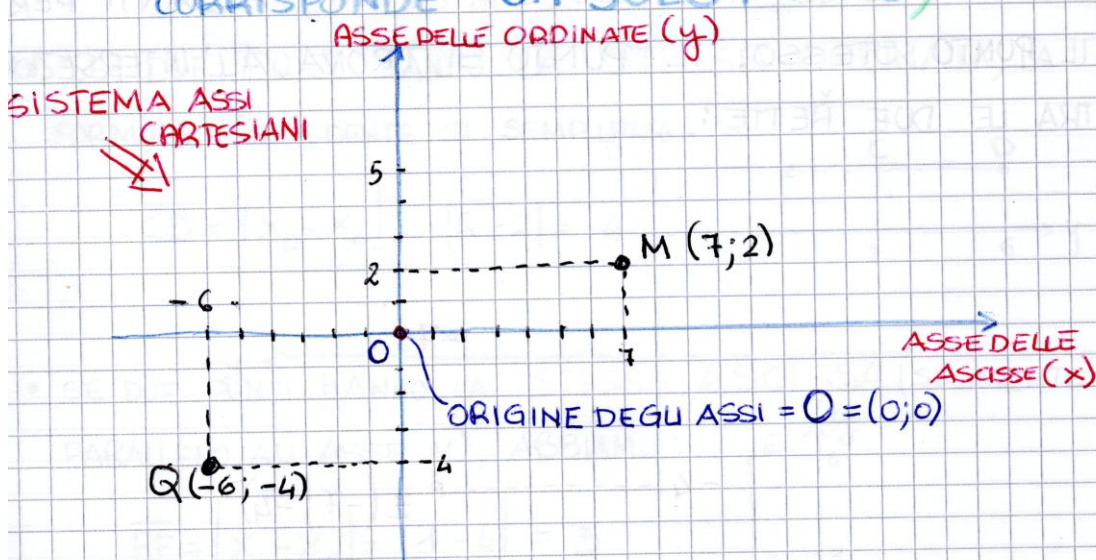 CORRISPONDE
ASSE DELLE ORDINATE (y)
SISTEMA ASSI
CARTESIANI
5
M (7;2)
2
-6
O
7
ASSE DELLE
ASCISSE (x)
ORIGINE DEGLI ASSI = O = (0;0)
-4
Q (-6; -4)